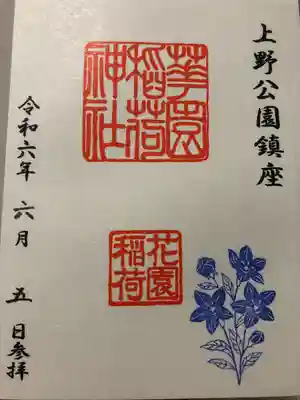 上野公園鎮座
華園稲荷神社
花園稲荷
令和六年 六月 五 日参拝